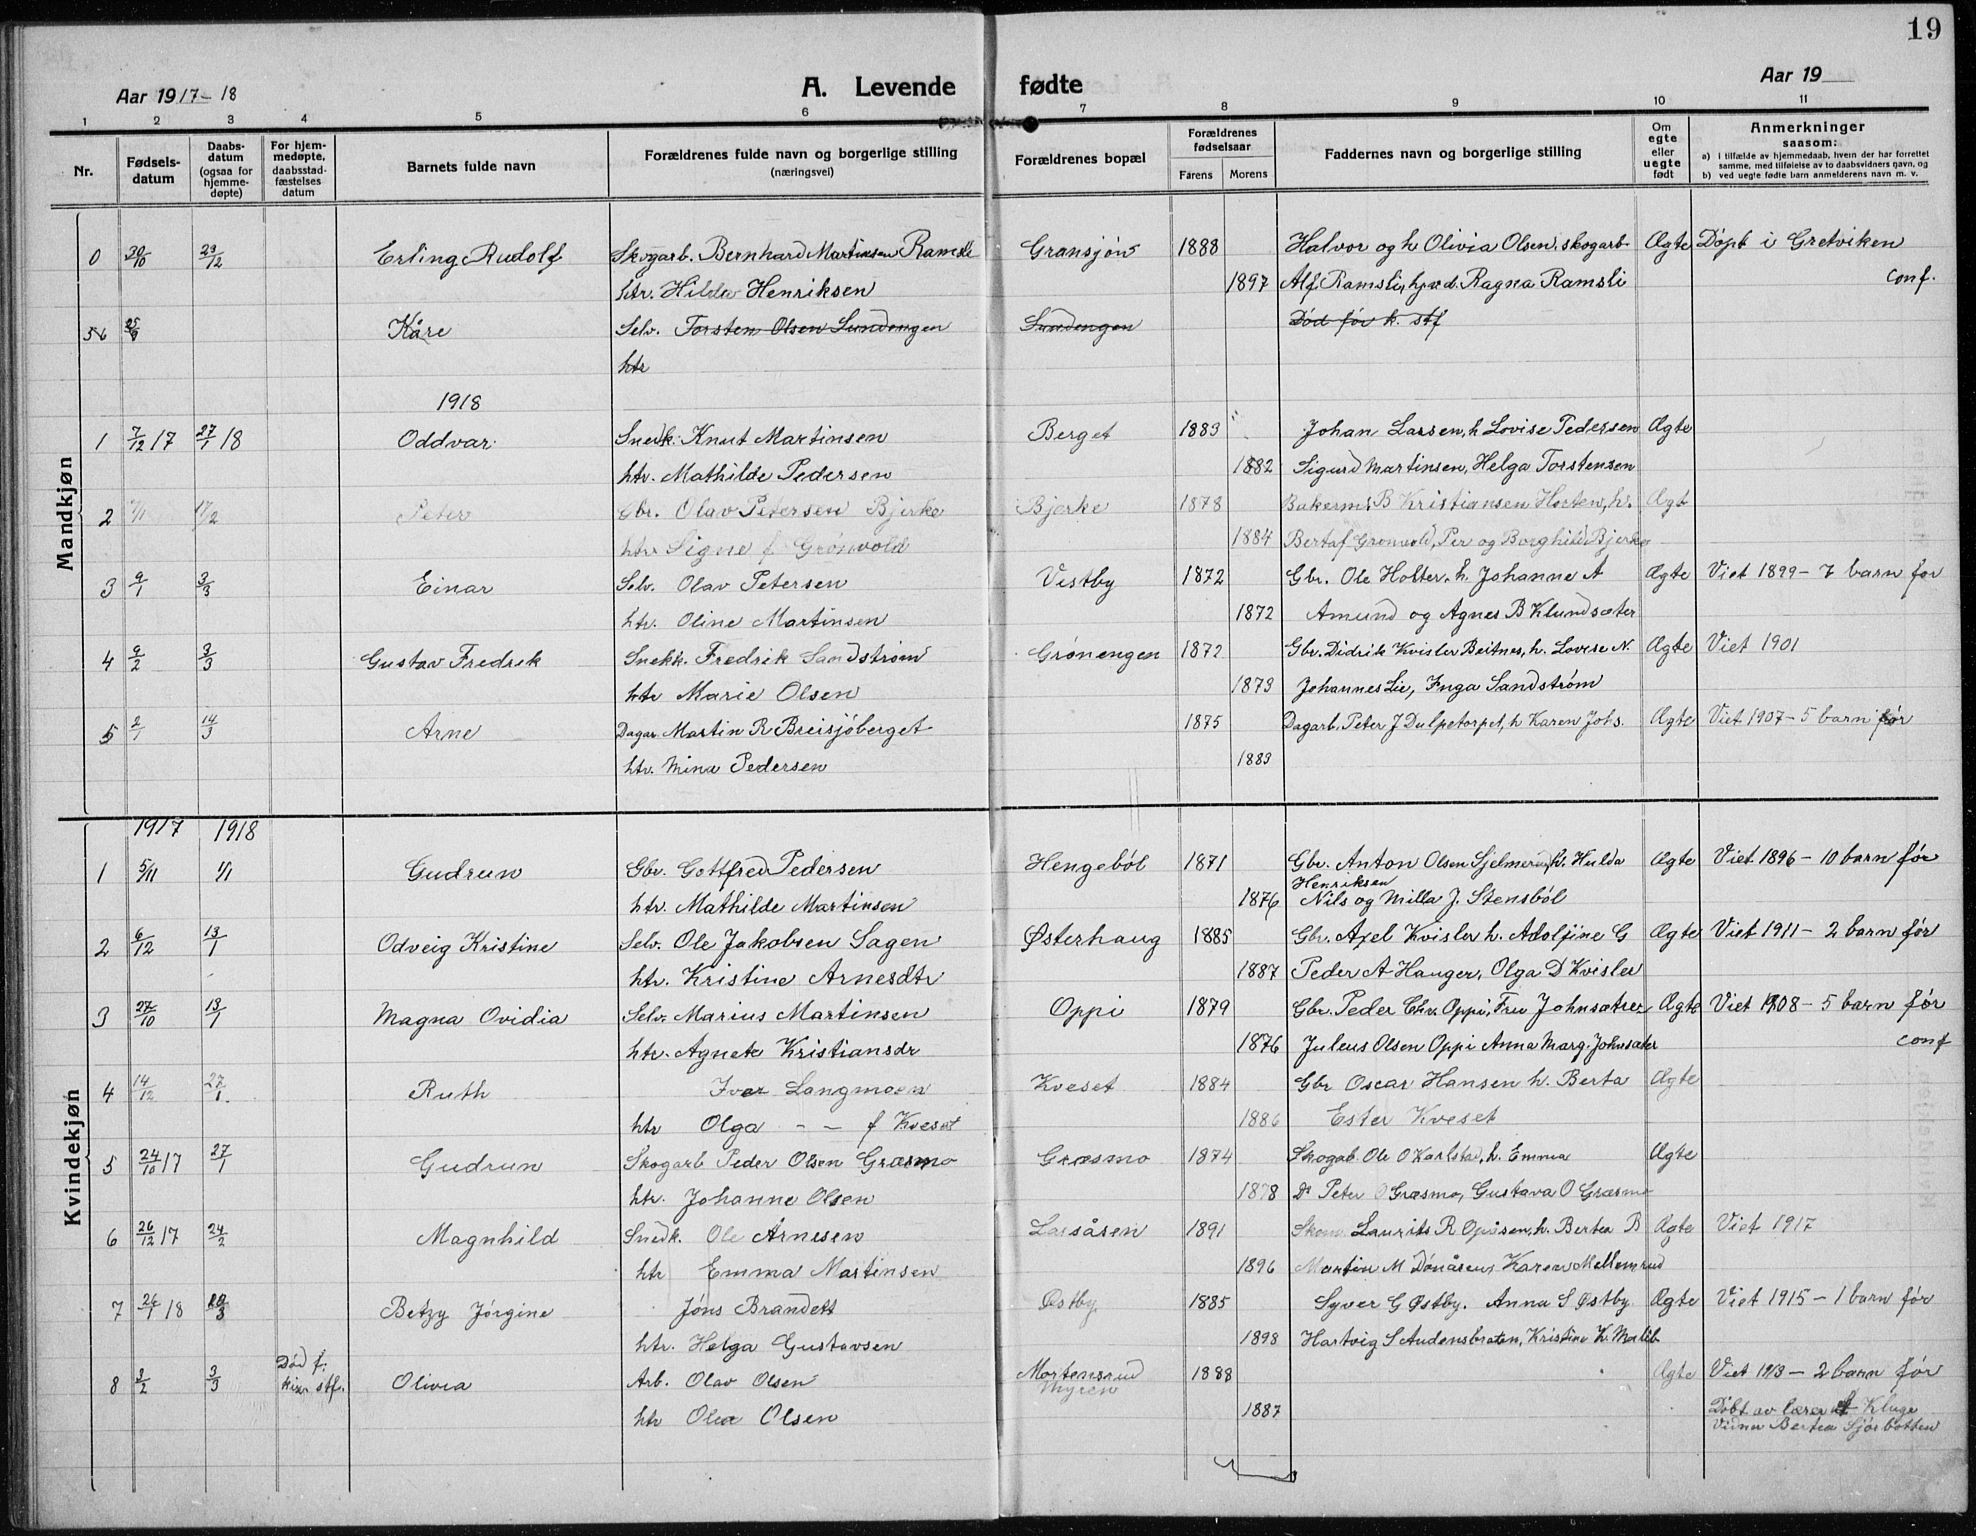 19
Aar 1917-18 A. Levende fødte Aar 19
1 2 3 4 5 6 7 8 9 10 11
Nr. Fødsels-datum Daabs-datum (ogsaa for hjemme-døpte) For hjem-medøpte, daabsstad-fæstelses datum Barnets fulde navn Forældrenes fulde navn og borgerlige stilling (næringsvei) Forældrenes bopæl Forældrenes fødselsaar Farens Morens Faddernes navn og borgerlige stilling Om egte eller uegte født Anmerkninger saasom: a) i tilfælde av hjemmedaab, hvem der har forrettet samme, med tilføielse av to daabsvidners navn, og b) ved uegte fødte barn anmelderens navn m. v.
Mandkjøn
0 30/10 29/12 Erling Rudolf Skogarb. Bernhard Martinsen Gransjøn 1888 Halvor og h Olivia Olsen, skogarb Ægte Døpt i Gretviken
htr. Hilda Henriksen 1897 Alf Ramsli, Ragna Ramsli conf.
56 Kåre Selv. Torsten Olsen Sundengen Sundengen Død før k. stf
htr
1918
1 7/12 17 27/1 18 Oddvar Snedk. Knut Martinsen Berget 1883 Johan Larsen, h Lovise Pedersen Ægte
htr. Mathilde Pedersen 1882 Sigurd Martinsen, Helga Torstensen
2 Peter Gbr. Olav Petersen Bjerke Bjerke 1878 Bakerm. B Kristiansen Horten, h. Ægte
htr Signe f Grønvold 1884 Berta f Grønvold, Per og Borghild Bjerke
3 9/1 3/3 Einar Selv. Olav Petersen Vestby 1872 Gbr. Ole Holter, h. Johanne A Ægte Viet 1899 - 7 barn før
htr. Oline Martinsen 1872 Amund og Agnes B Klundsæter
4 9/2 3/3 Gustav Fredrik Snekk. Fredrik Sandstrøm Grønengen 1872 Gbr. Didrik Kvisler Beitnes, h. Lovise N. Ægte Viet 1901
htr Marie Olsen 1873 Johannes Lie, Inga Sandstrøm
5 2/1 14/3 Arne Dagar. Martin R Breisjøberget 1875 Dagarb. Peter J Dulpetorpet, h Karen Johs. Ægte Viet 1907 - 5 barn før
htr. Mina Pedersen 1883
Kvindekjøn
1917 1918
1 5/11 1/1 Gudrun Gbr. Gottfred Pedersen Hengebøl 1871 Gbr. Anton Olsen h. Hulda Ægte Viet 1896 - 10 barn før
Henriksen
htr. Mathilde Martinsen 1876 Nils og Milla J. Stensbøl
2 6/12 13/1 Odveig Kristine Selv. Ole Jakobsen Sagen Østerhaug 1885 Gbr. Axel Kvisler h. Adolfine G Ægte Viet 1911 - 2 barn før
htr. Kristine Arnesdtr 1887 Peder A Hanger, Olga D Kvisler
3 27/10 13/1 Magna Ovidia Selv. Marius Martinsen Oppi 1879 Gbr. Peder Chr. Oppi, Fru Johnsætre Ægte Viet 1908 - 5 barn før
htr. Agnete Kristiansdr 1876 Julius Olsen Oppi Anna Marg. Johnsæter conf
4 14/12 27/1 Ruth Iver Langmoen Kveset 1884 Gbr Oscar Hansen h. Berta Ægte
htr Olga - - f Kveset 1886 Ester Kveset
5 24/10 17 27/1 Gudrun Skogarb Peder Olsen Græsmo Græsmo 1874 Skogab Ole O Karlstad, h. Emma Ægte
htr. Johanne Olsen 1878 Do Peter O Græsmo, Gustava O Græsmo
6 26/12 17 24/2 Magnhild Snedk. Ole Arnesen Larsåsen 1891 Skom. Laurits R Opåsen, h. Berta B Ægte Viet 1917
htr Emma Martinsen 1896 Martin M Dønåsen, Karen Mellemrud
7 26/1 18 Betzy Jørgine Jøns Brandett Østby 1885 Syver G Østby. Anna S Østby Ægte Viet 1915 - 1 barn før
htr. Helga Gustavsen 1898 Hartvig S Audensbraten, Kristine K.
8 3/2 3/3 Død f. stf. Olivia Arb. Olav Olsen Mortensrud Myren 1888 Ægte Viet 1913 - 2 barn før
htr Olea Olsen 1887 Døbt av lærer Kluge
Vidner Bertea Sjørbotten